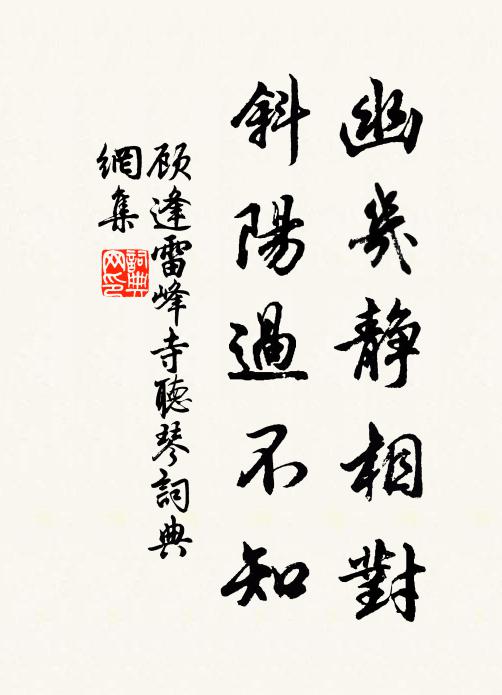 幽幾静相對
斜陽過不知
顾逢雷峰寺聽琴詞典
網集
詞典
网印